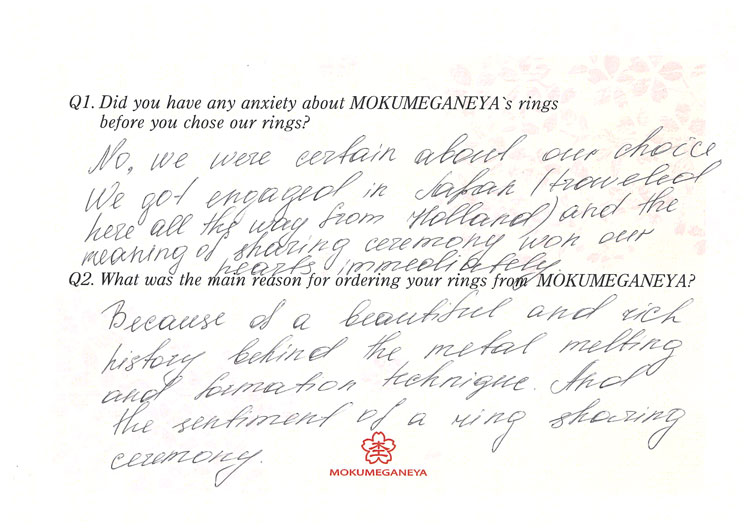 Q1. Did you have any anxiety about MOKUMEGANEYA`s rings
before you chose our rings?
No, we were certain about our choice
We got engaged in Japan (traveled
here all the way from Holland) and the
meaning of sharing ceremony won our
hearts immediately.
Q2. What was the main reason for ordering your rings from MOKUMEGANEYA?
Because of a beautiful and rich
history behind the metal melting
and formation technique. And
the sentiment of a ring sharing
ceremony.
MOKUMEGANEYA